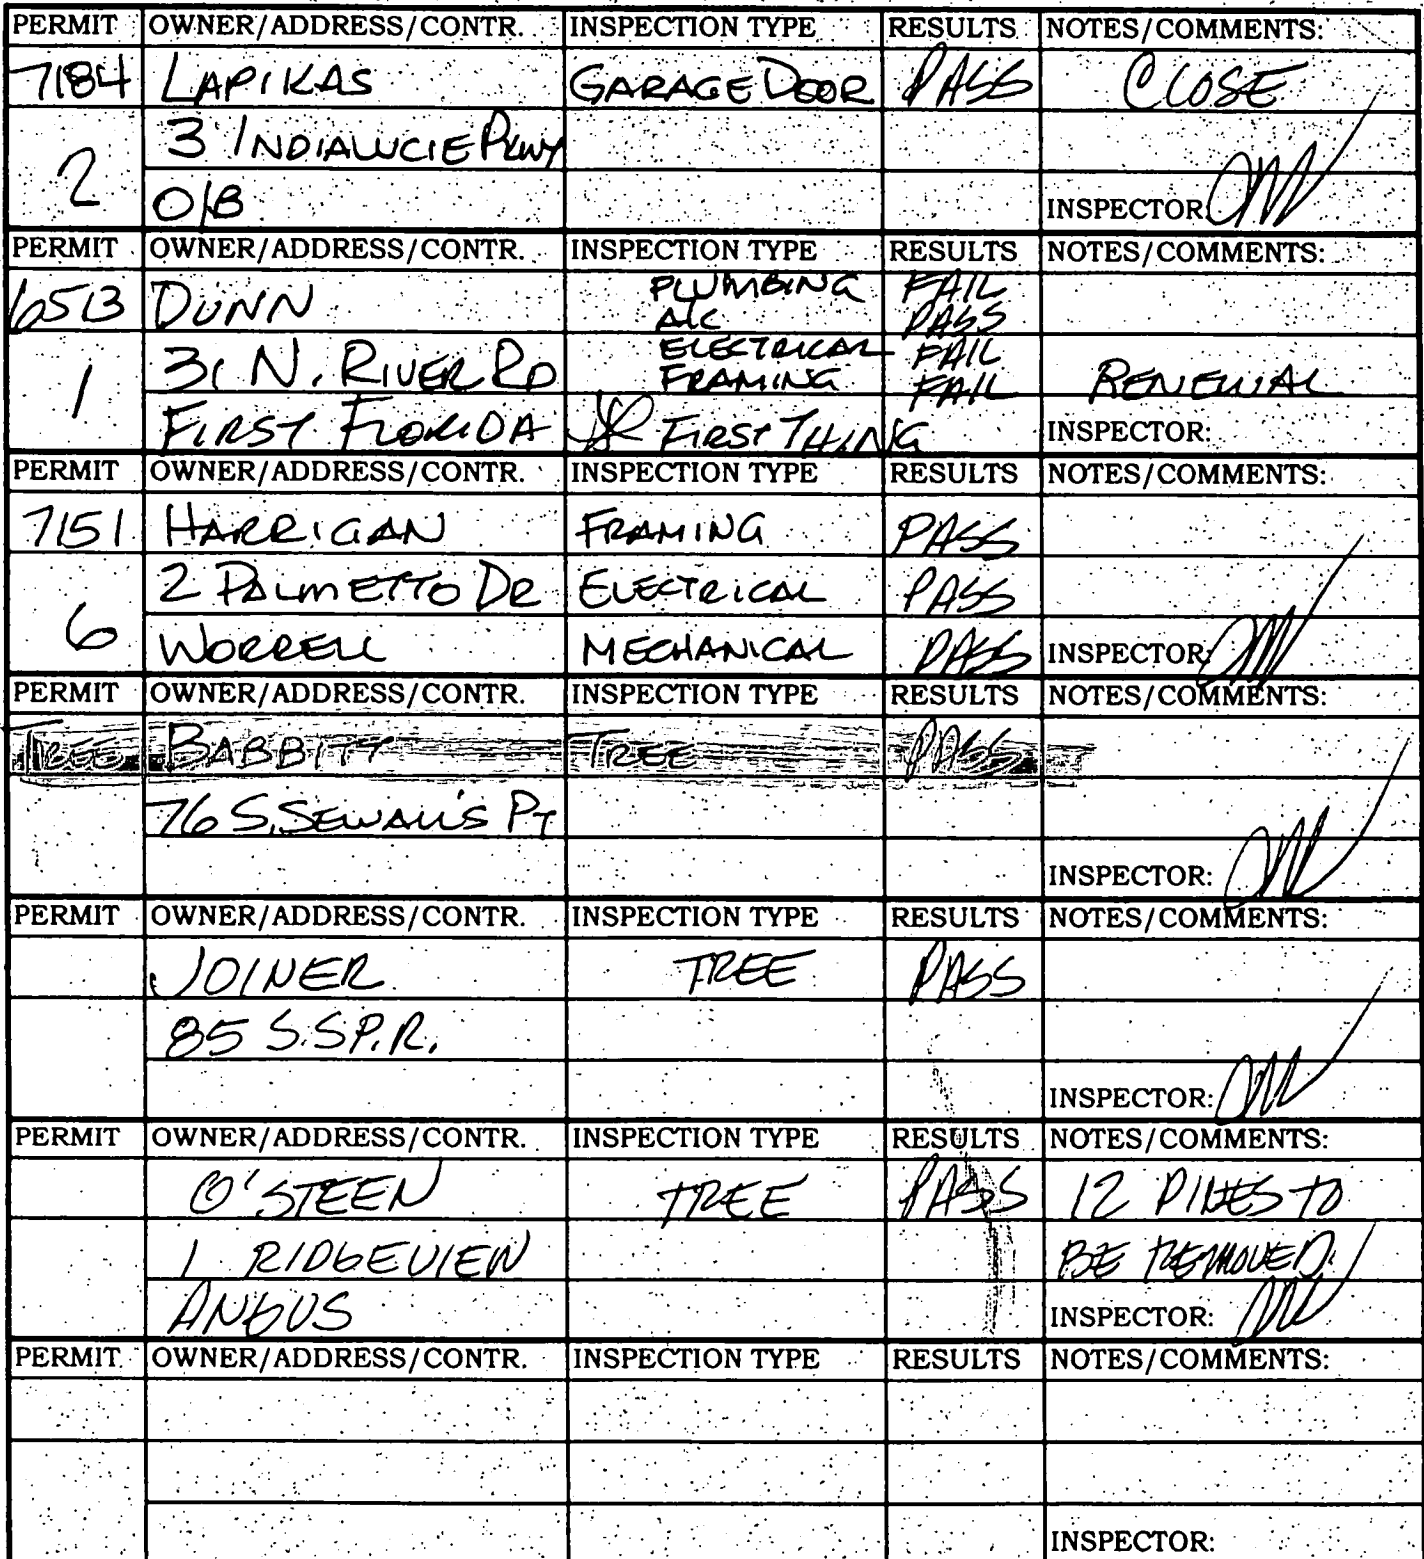 PERMIT OWNER/ADDRESS/CONTR. INSPECTION TYPE RESULTS NOTES/COMMENTS:
7184 LAPIKAS GARAGE DOOR PASS CLOSE
3 INDIALUCIE PKWY
2 O/B INSPECTOR:
PERMIT OWNER/ADDRESS/CONTR. INSPECTION TYPE RESULTS NOTES/COMMENTS:
PLUMBING FAIL
6513 DUNN A/C PASS
ELECTRICAL FAIL
1 31 N. RIVER RD FRAMING FAIL RENEWAL
FIRST FLORIDA FIRST THING INSPECTOR:
PERMIT OWNER/ADDRESS/CONTR. INSPECTION TYPE RESULTS NOTES/COMMENTS:
7151 HARRIGAN FRAMING PASS
2 PALMETTO DR ELECTRICAL PASS
6 WORRELL MECHANICAL PASS INSPECTOR:
PERMIT OWNER/ADDRESS/CONTR. INSPECTION TYPE RESULTS NOTES/COMMENTS:
TREE BABBITT TREE PASS
76 S. SEWALL'S PT
INSPECTOR:
PERMIT OWNER/ADDRESS/CONTR. INSPECTION TYPE RESULTS NOTES/COMMENTS:
JOINER TREE PASS
85 S.S.P.R.
INSPECTOR:
PERMIT OWNER/ADDRESS/CONTR. INSPECTION TYPE RESULTS NOTES/COMMENTS:
O'STEEN TREE PASS 12 PINES TO
1 RIDGEVIEW BE REMOVED.
ANGUS INSPECTOR:
PERMIT OWNER/ADDRESS/CONTR. INSPECTION TYPE RESULTS NOTES/COMMENTS:
INSPECTOR: